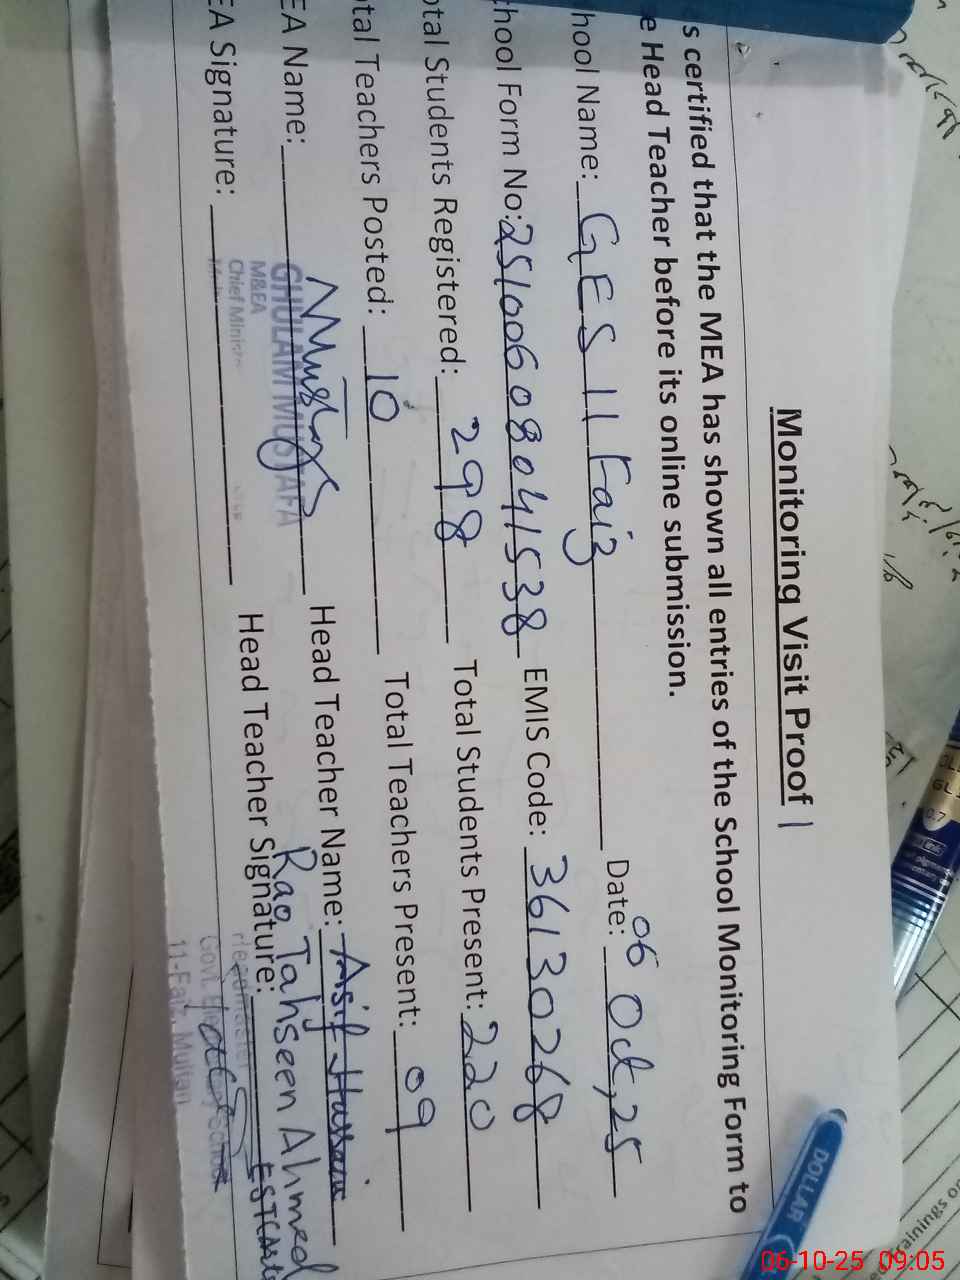 Monitoring Visit Proof
s certified that the MEA has shown all entries of the School Monitoring Form to
e Head Teacher before its online submission.
hool Name: GES 11 Faiz Date: 06 Oct, 25
hool Form No: 25100608041538 EMIS Code: 36130268
otal Students Registered: 298 Total Students Present: 220
tal Teachers Posted: 10 Total Teachers Present: 09
EA Name: Head Teacher Name: Asif Hussain
GHULAM MUSTAFA
M&EA
Chief Minist
EA Signature: Head Teacher Signature:
Rao Tahseen Ahmed
Headmaster
Govt. Ele
11-Faiz, Multan
DOLLAR
0.7
ainings o
06-10-25 09:05